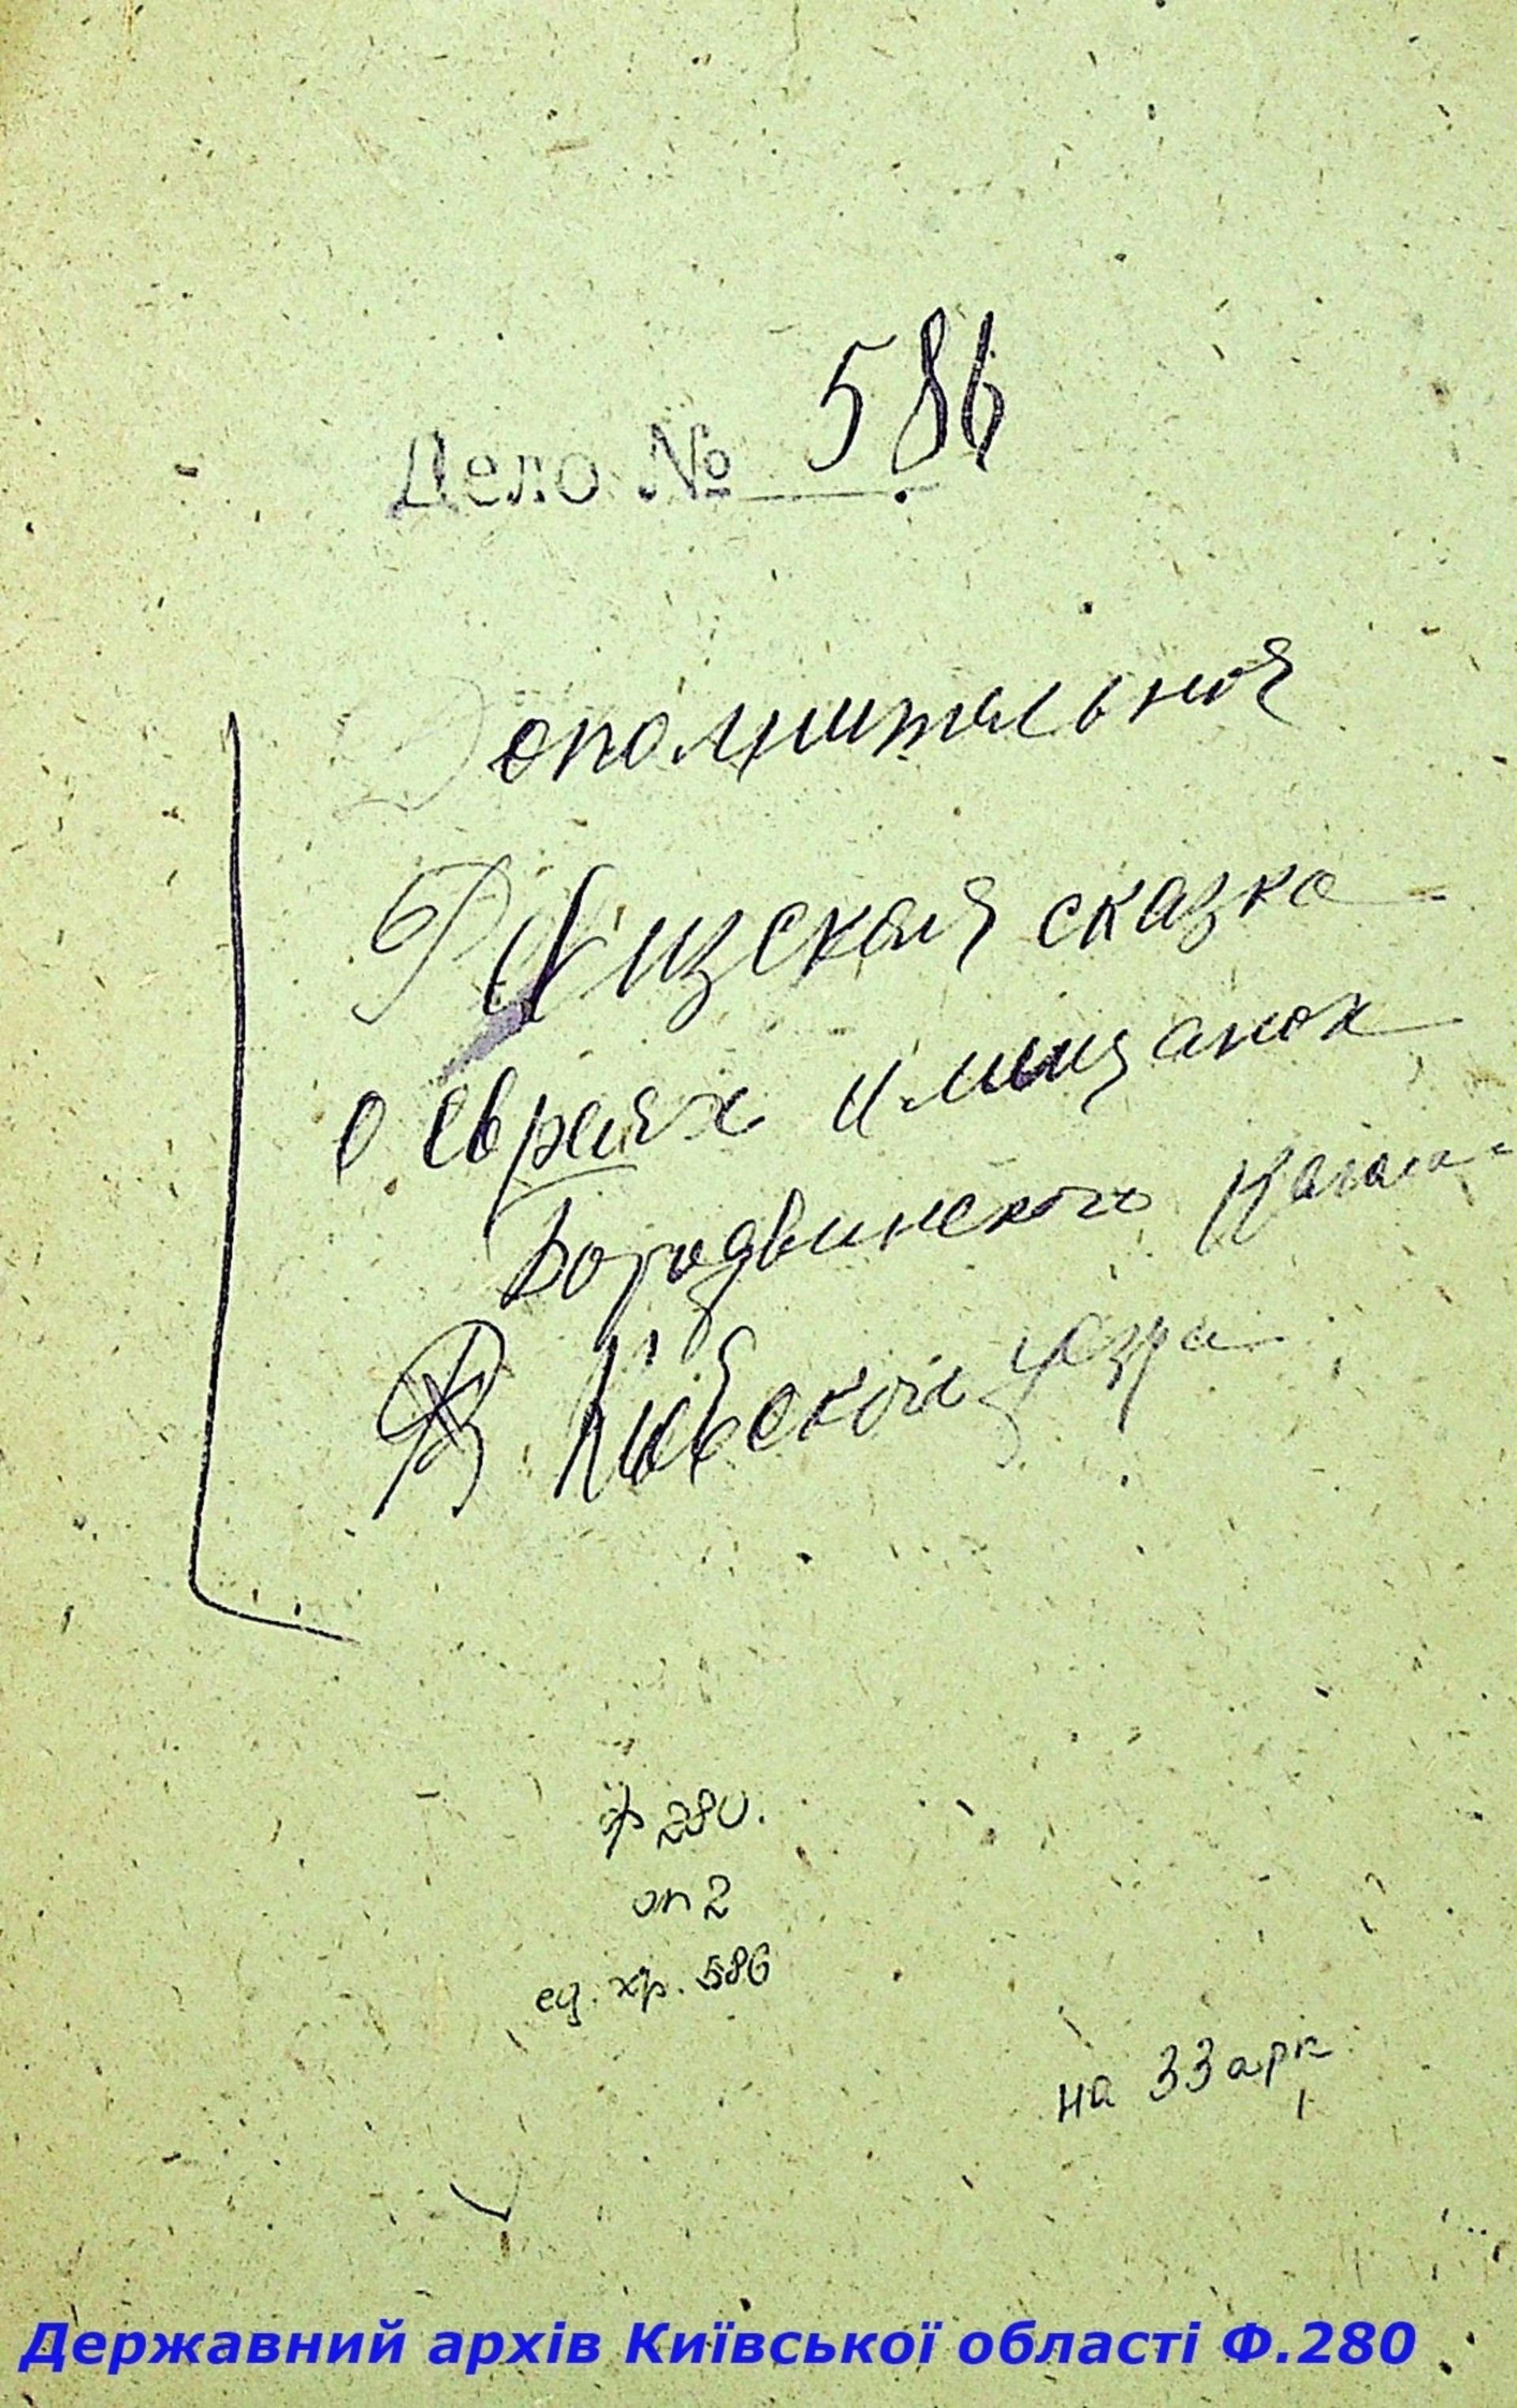 Дело № 586
Дополнительная
Ревизская сказка
о евреях и мещанах
Бородянского Кагала
В Киевской
ф 280.
оп 2
ед. хр. 586
на 33 арк
Державний архів Київської області Ф.280